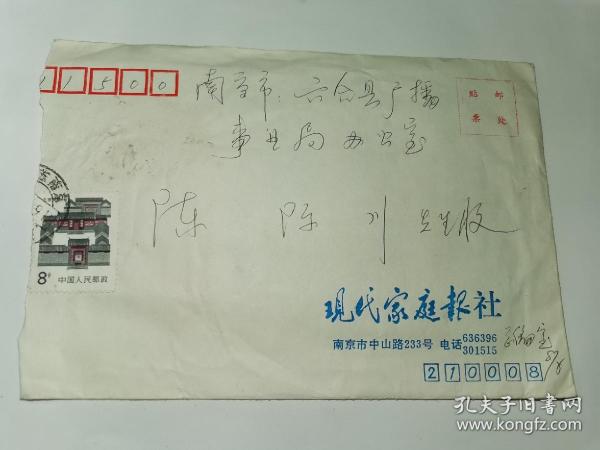 11500
南京市:六合县广播
贴邮
票处
事业局办公室
陈 际川 先生收
8分 中国人民邮政
现代家庭报社
南京市中山路233号 电话 636396
301515
210008
孔夫子旧书网
www.kongfz.com